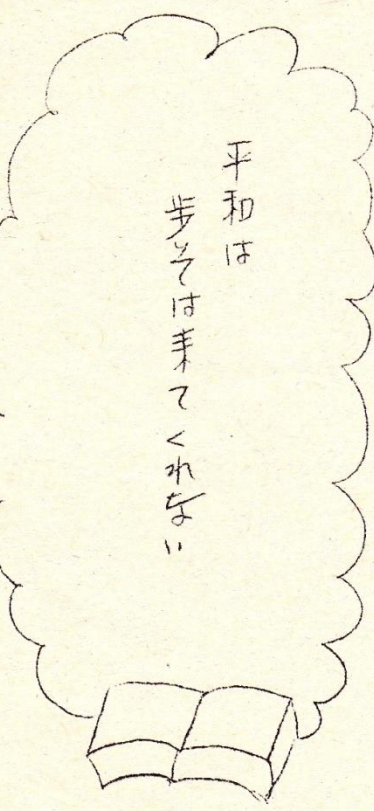 平和は
歩いては来てくれない